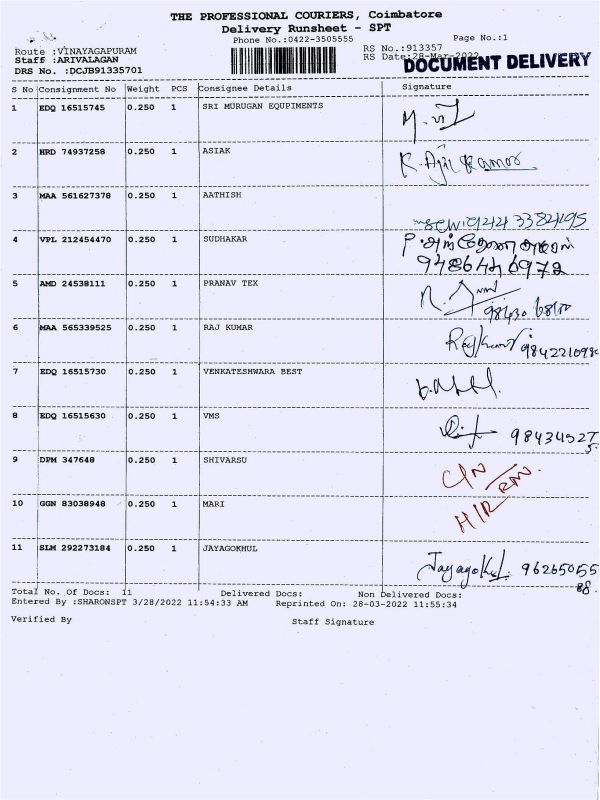 THE PROFESSIONAL COURIERS, Coimbatore
Delivery Runsheet - SPT
Phone No.:0422-3505555 Page No.:1
Route :VINAYAGAPURAM RS No.:913357
Staff :ARIVALAGAN RS Date:28-Mar-2022
DRS No. :DCJB91335701 DOCUMENT DELIVERY
S No Consignment No Weight PCS Consignee Details Signature
1 EDQ 16515745 0.250 1 SRI MURUGAN EQUPIMENTS
2 HRD 74937258 0.250 1 ASIAK
3 MAA 561627378 0.250 1 AATHISH
4 VPL 212454470 0.250 1 SUDHAKAR
9486446972
5 AMD 24538111 0.250 1 PRANAV TEX
6 MAA 565339525 0.250 1 RAJ KUMAR
7 EDQ 16515730 0.250 1 VENKATESHWARA BEST
8 EDQ 16515630 0.250 1 VMS
9 DPM 347648 0.250 1 SHIVARSU
10 GGN 83038948 0.250 1 MARI
11 SLM 292273184 0.250 1 JAYAGOKHUL
Total No. Of Docs: 11 Delivered Docs: Non Delivered Docs:
Entered By :SHARONSPT 3/28/2022 11:54:33 AM Reprinted On: 28-03-2022 11:55:34
Verified By Staff Signature